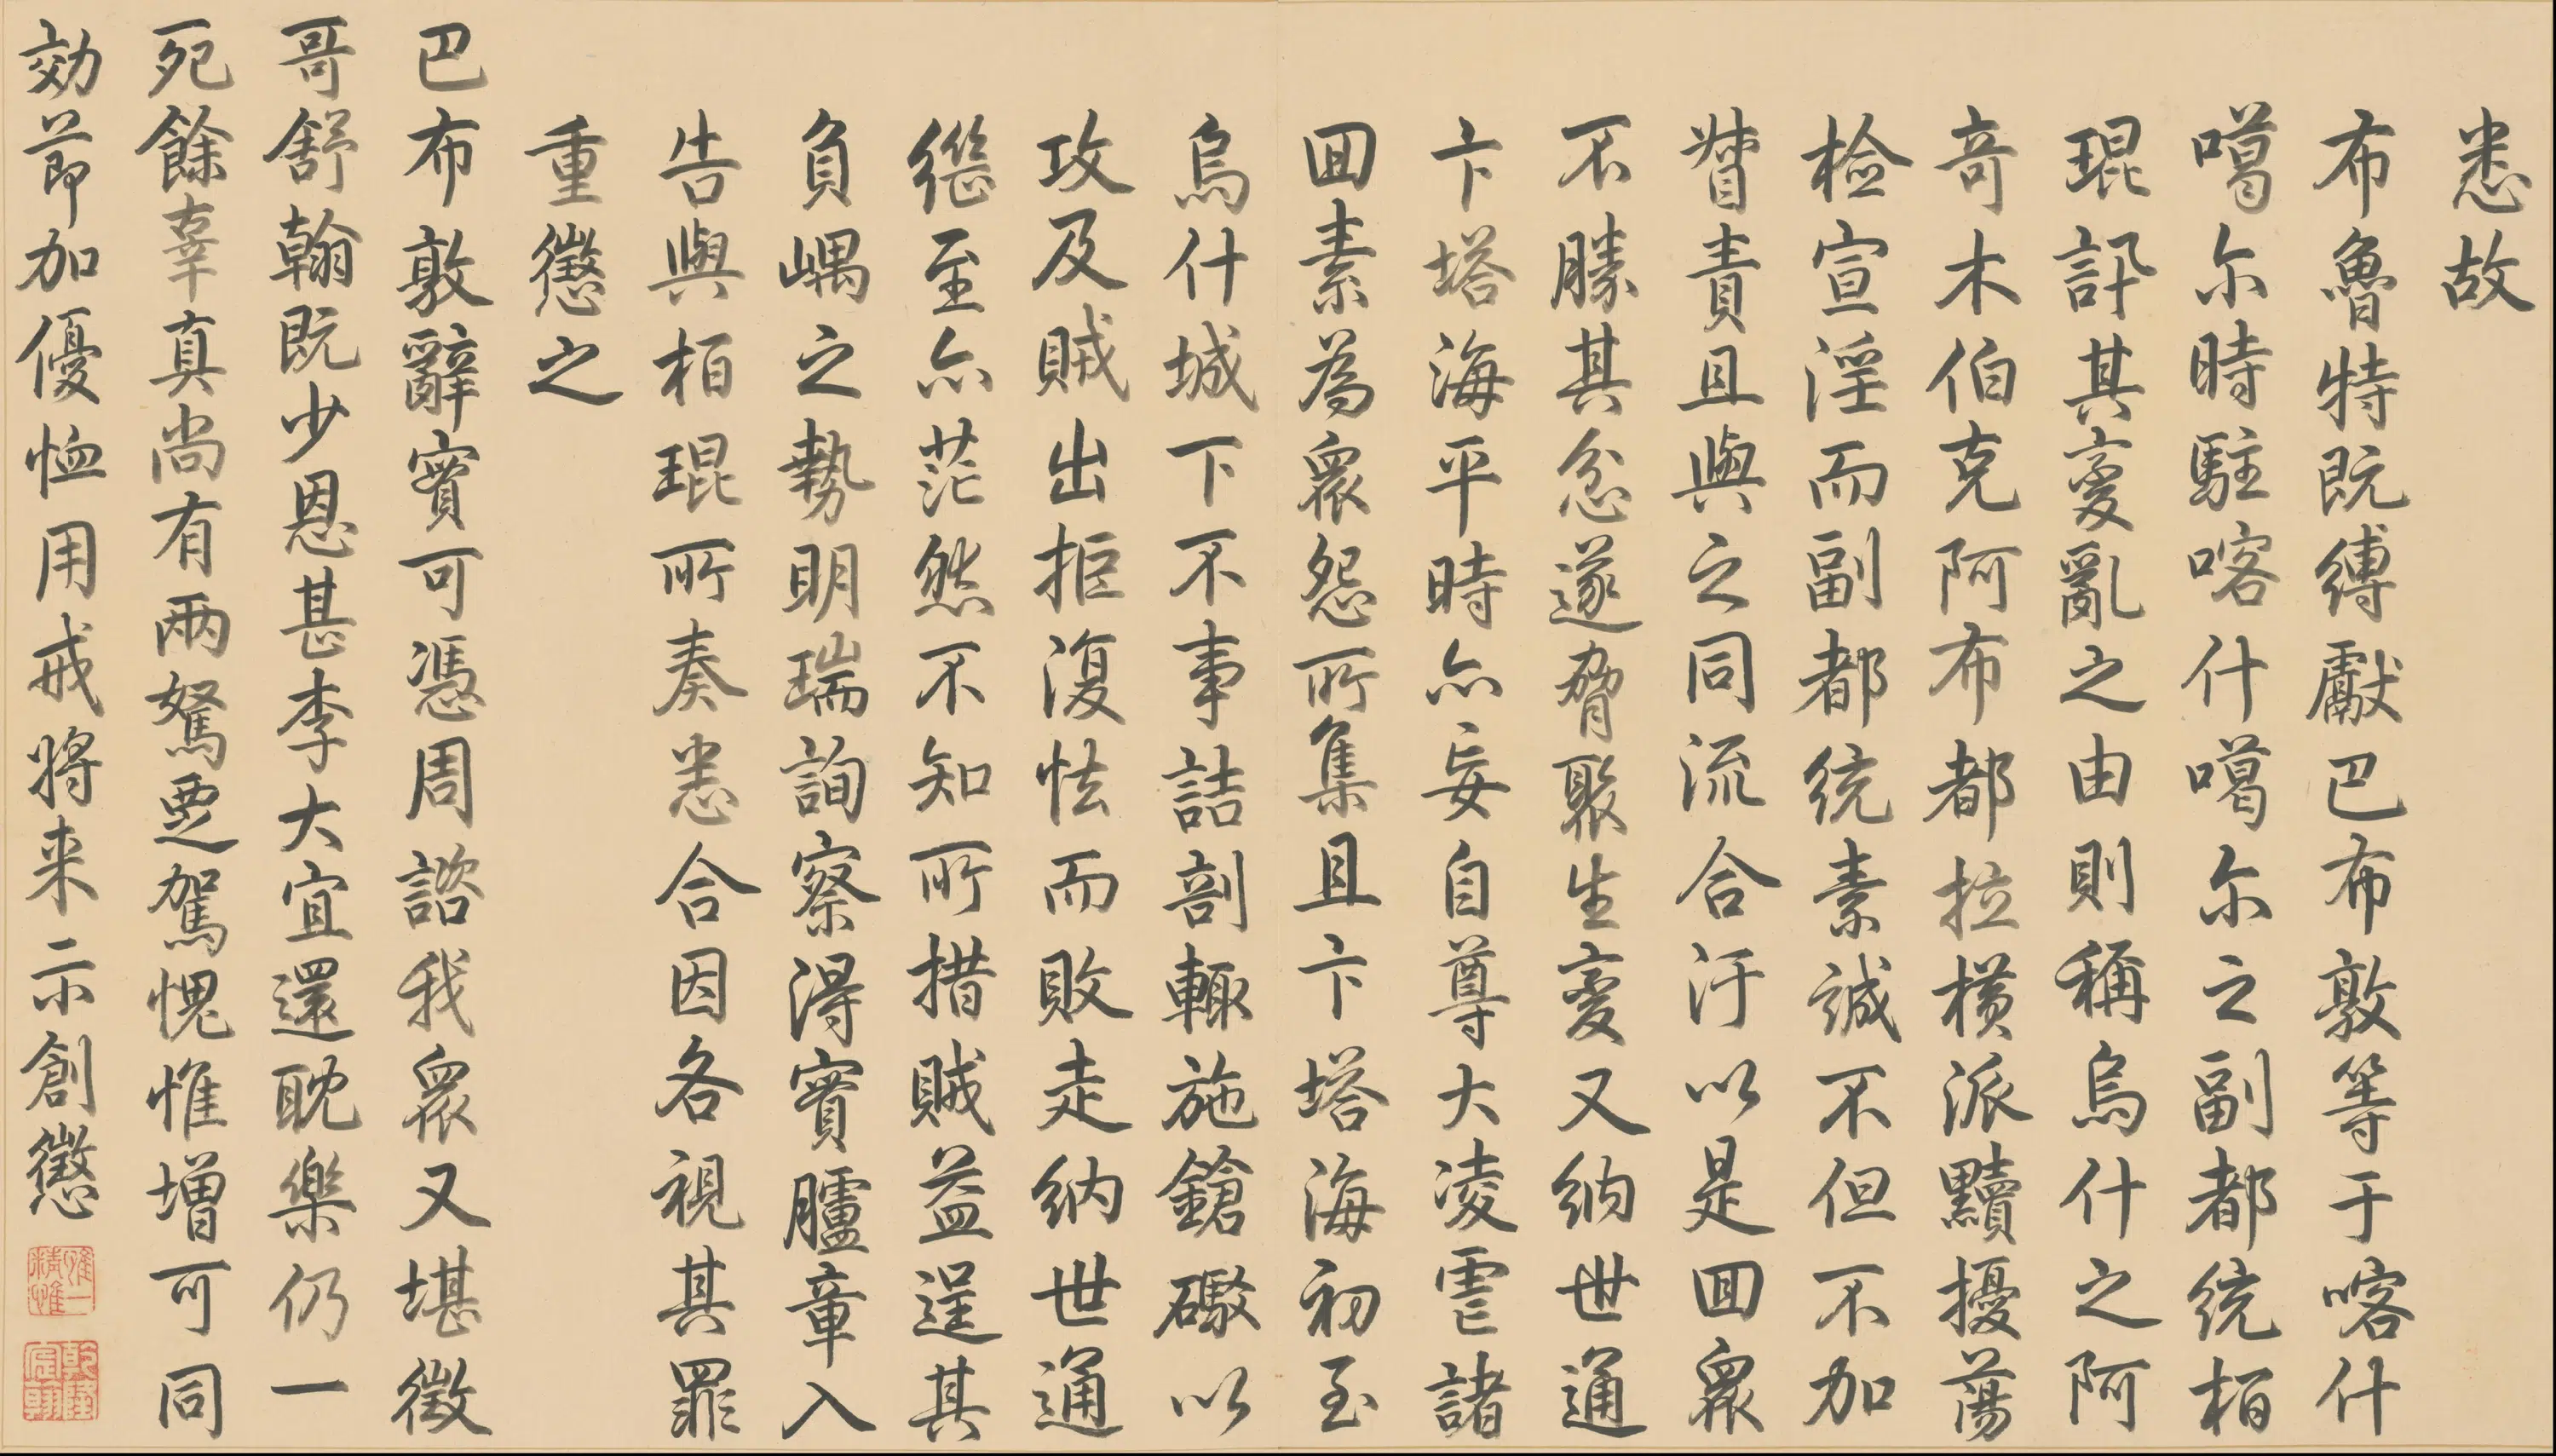 悉故
布魯特既縛獻巴布敦等于喀什
噶尓時駐喀什噶尓之副都統栢
琨訊其變亂之由則稱烏什之阿
奇木伯克阿布都拉橫派黷擾蕩
檢宣淫而副都統素誠不但不加
督責且與之同流合汙以是囬衆
不勝其忿遂脅聚生變又納世通
卞塔海平時亦妄自尊大凌虐諸
囬素為衆怨所集且卞塔海初至
烏什城下不事詰剖輙施鎗礮以
攻及賊出拒復怯而敗走納世通
繼至亦茫然不知所措賊益逞其
負嵎之勢明瑞詢察得實臚章入
告與栢琨所奏悉合因各視其罪
重懲之
巴布敦辭實可憑周諮我衆又堪徵
哥舒翰既少恩甚李大宜還耽樂仍一
死餘辜真尚有兩駑覂駕愧惟增可同
効節加優恤用戒將来示創懲
惟精惟一
乾隆宸翰